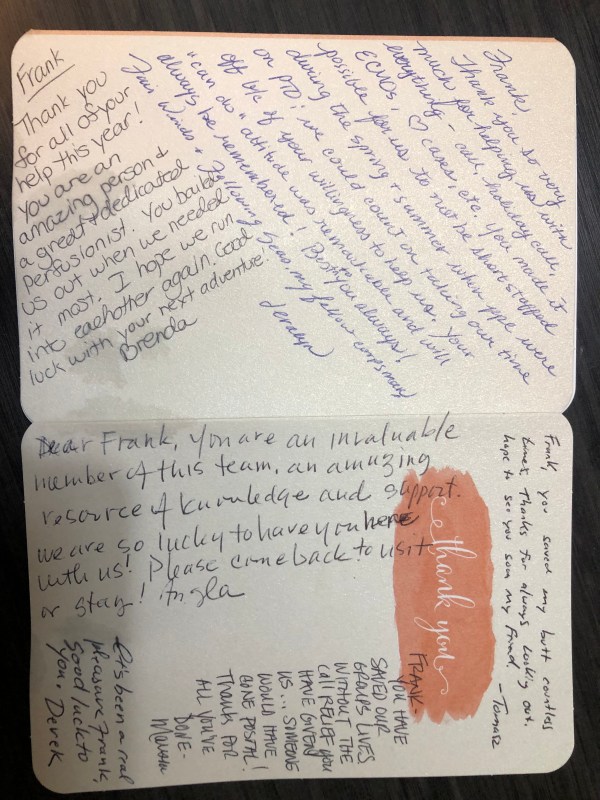 Frank
Thank you
for all of your
help this year!
You are an
amazing person &
a great & dedicated
perfusionist. You bailed
us out when we needed
it most. I hope we run
into eachother again. Good
luck with your next adventure!
Brenda
Frank,
Thank you so very
much for helping us with
everything - call, holiday call,
ECMOs, ♡ cases, etc. You made it
possible for us to not be short stopped
during the spring & summer when ppl were
on PTO; we could count on taking our time
off b/c of your willingness to help us. Your
"can do" attitude was remarkable and will
always be remembered! Best to you always!
Fair Winds & Following Seas, my fellow corpsman
Dear Frank, You are an invaluable
member of this team, an amazing
resource of knowledge and support.
we are so lucky to have you here
with us! Please come back to visit
or stay! Angla
thank you
Frank, you saved my butt countless
times. Thanks for always looking out.
hope to see you soon my friend.
- Tomasz
FRANK-
YOU HAVE
SAVED OUR
GROUPS LIVES
WITHOUT THE
CALL RELIEF YOU
HAVE GIVEN
US... SOMEONE
WOULD HAVE
GONE POSTAL!
THANKS FOR
ALL YOU'VE
DONE-
It's been a real
pleasure Frank,
Good luck to
you. Derek